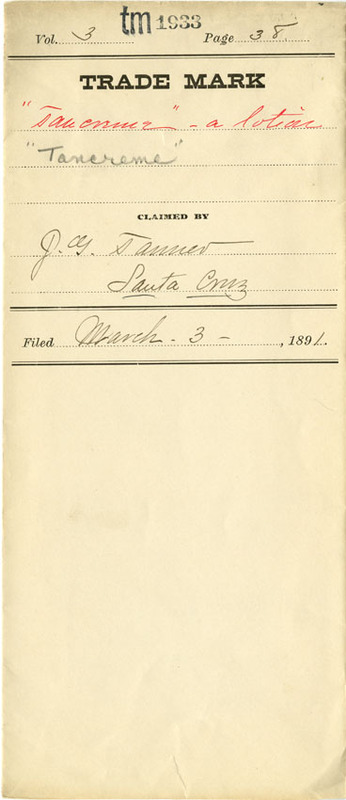 tm 1933
Vol. 3 Page 38
TRADE MARK
"Tancreme" - a lotion
"Tancreme"
CLAIMED BY
J. G. Tanner
Santa Cruz
Filed March - 3 - , 1891.